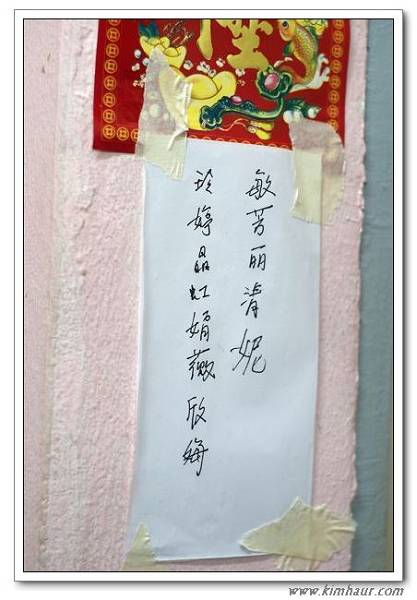 敏芳丽清妮
玲婷晶虹娟薇欣
www.kimhaur.com